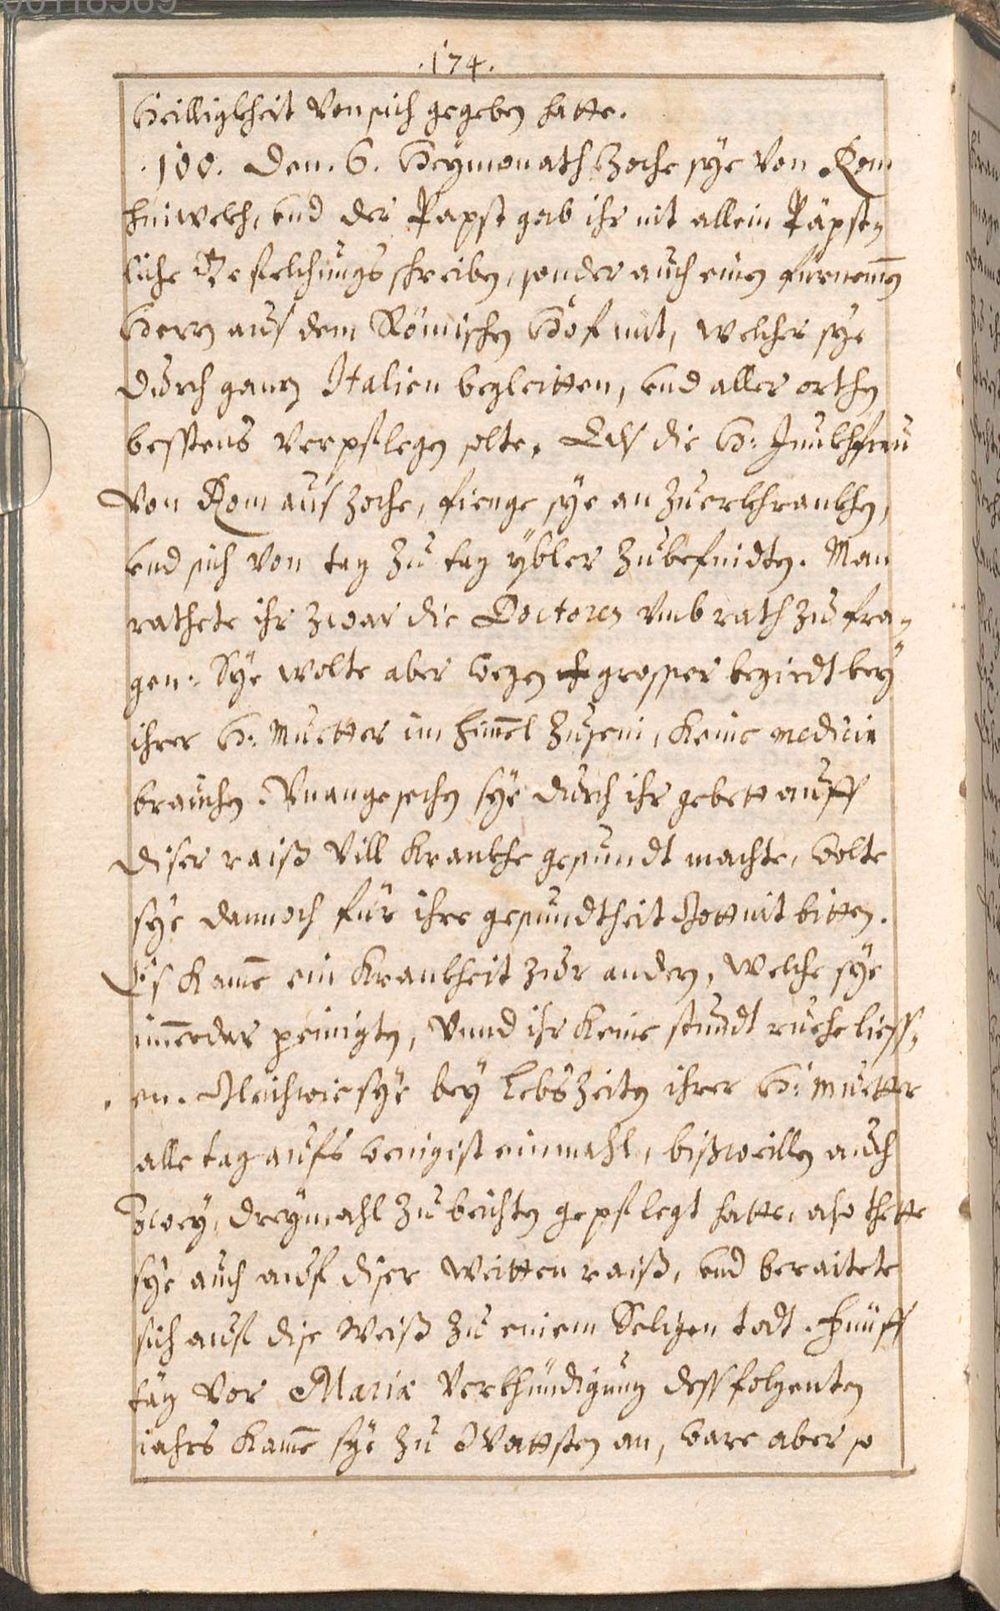 .174.
Heilligkheit von sich gegeben hatte.
.100. Den. 6. Heymonath Zoche sye von Rom
hinwekh, und der Papst gab ihr nit allein Päpst„
liche Befelchungs schreiben, sonder auch einen fürnemen̄
Herrn aus dem Römischen Hof mit, welcher sye
durch gantz Italien begleitten, und aller orthen
besstens verpflegen solte. Als die H: Junkhfrau
von Rom aus zoche, fienge sye an zuerkhrankhen,
und sich von tag zu tag ybler zubefindten. Man
rathete ihr zwar die Doctores umb rath zu fra„
gen: Sye wolte aber wegen grosser begirdt bey
ihrer H: Muetter im him̄el zusein, keine medicin
brauchen. Unangesechen sye durch ihr gebett auff
diser raiß vill Krankhe gesundt machte, wolte
sye dannoch für ihre gesundtheit Gott nit bitten.
Es kam̄e ein Krankheit zur andern, welche sye
im̄erdar peinigten, unnd ihr keine stundt ruehe liess„
en. Gleichwie sye bey lebs Zeiten ihrer H: Muetter
alle tag aufs wenigist einmahl, bißweillen auch
Zwey, dreymahl zu beichten gepflegt hatte, also thette
sye auch auf diser weitten raiß, und beraitete
sich auf dise weiß zu einem Seligen todt. Fünff
täg vor Mariæ verkhündigung dess folgenten
jahrs kam̄e sye zu Wattsten an, ware aber so